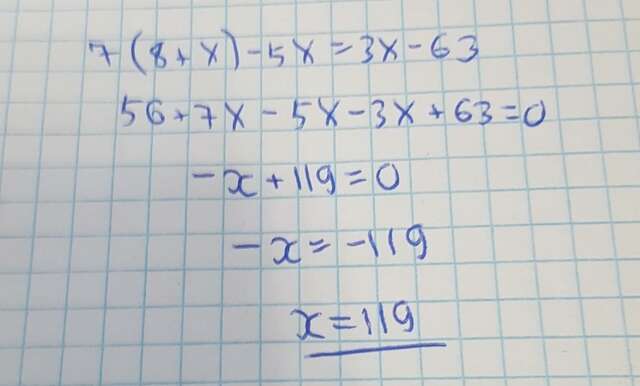 7(8+x)-5x=3x-63
56+7x-5x-3x+63=0
-x+119=0
-x=-119
x=119